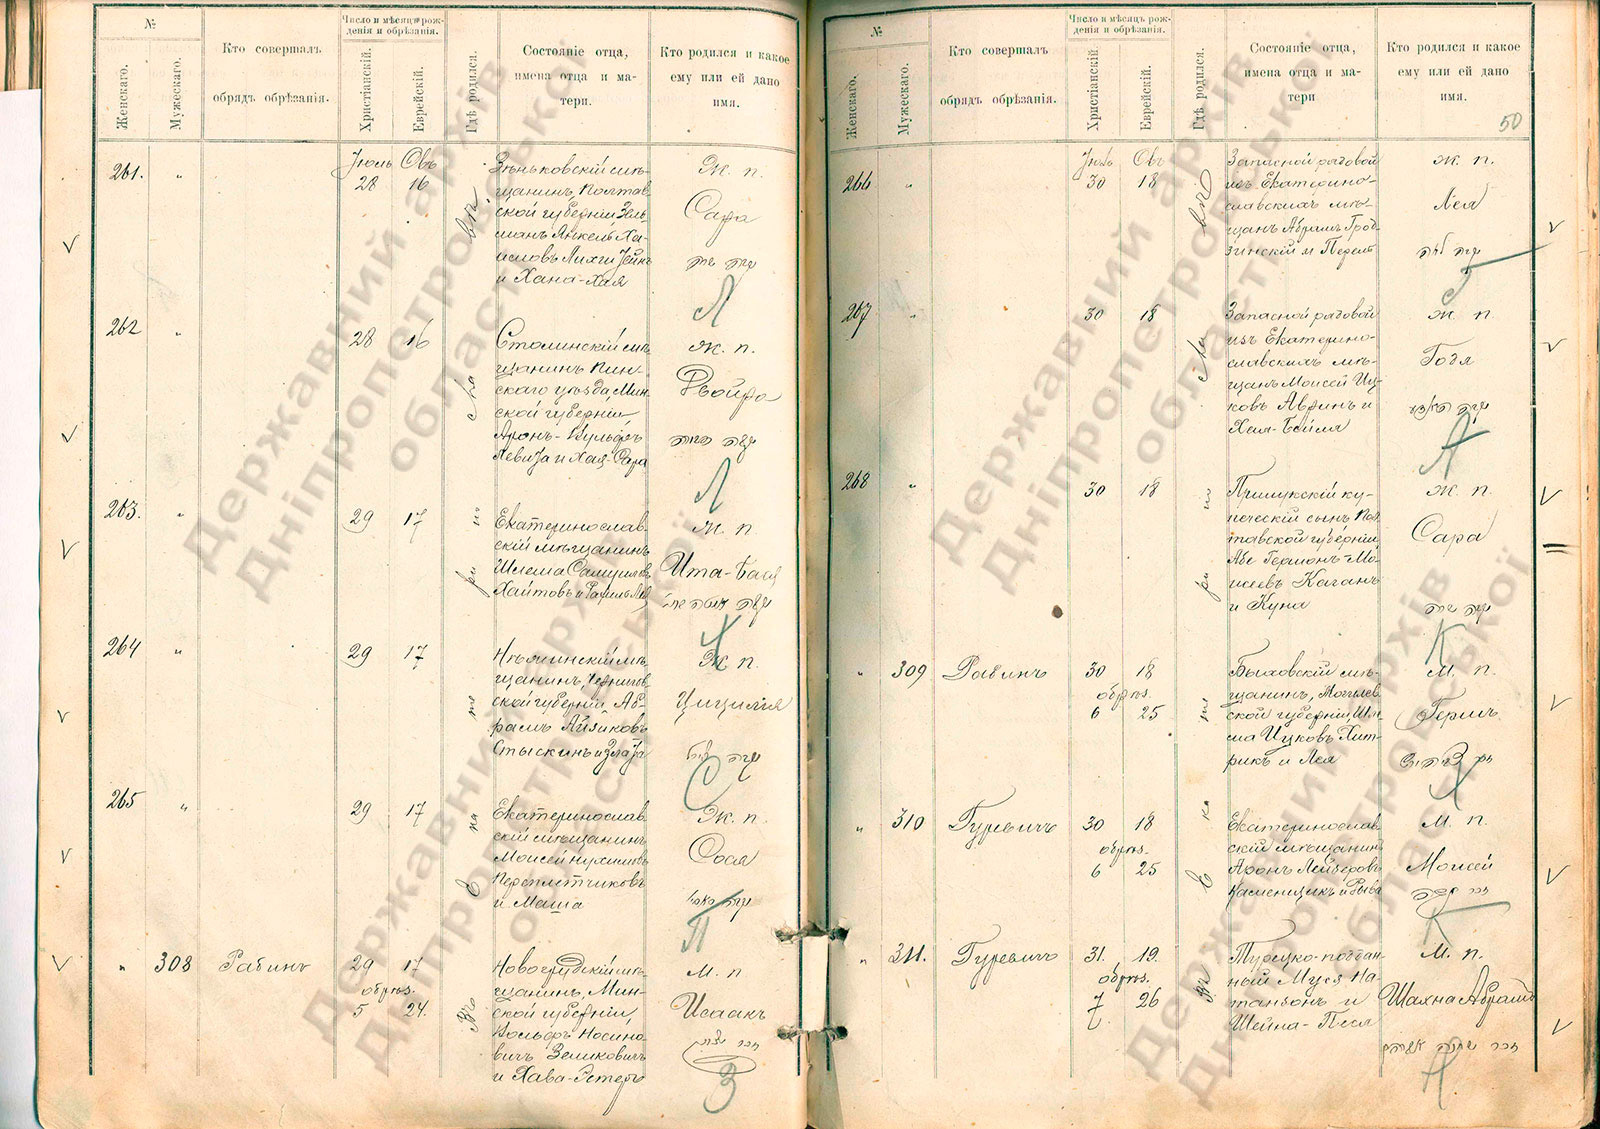 №
Женскаго.
Мужескаго.
Кто совершалъ
обрядъ обрѣзанія.
Число и мѣсяцъ рож-
денія и обрѣзанія.
Христіанскій.
Еврейскій.
Гдѣ родился.
Состояніе отца,
имена отца и ма-
тери.
Кто родился и какое
ему или ей дано
имя.
261. "
Іюль Овъ
28 16
Зѣньковскій мѣ-
щанинъ, Полтав
ской губерніи Зель-
манъ Янкель Ха-
и Хана-Хая
Ж. п.
Сара
Л
262 "
28 16
Столинскій мѣ
щанинъ Пин-
скаго уѣзда, Мин
ской губерніи
Аронъ-Вульфъ
Левита и Хая-Сара
Ж. п.
Двойра
Л
263. "
29 17
Екатеринослав
скій мѣщанинъ
Шлема Самуиловъ
Хаитовъ и
Ж. п
Ита-Бася
Х
264 "
29 17
Нѣжинскій мѣ
щанинъ, Чернигов
ской губерніи Аб-
рамъ Айзиковъ
Стыскинъ и Злата
Ж. п.
Цицилія
С
265 "
29 17
Екатеринослав
скій мѣщанинъ
Моисей Нухимовъ
Переплетчиковъ
и Маша
Ж. п.
Сося
П
" 308 Рабинъ
29 17
обрѣз.
5 24
Новогрудскій мѣ-
щанинъ, Мин-
ской губерніи,
Вольфъ Носино
вичъ Зеликовичъ
и Хава-Эстеръ
М. п
Исаакъ
З
Въ Екатеринославѣ
№
Женскаго.
Мужескаго.
Кто совершалъ
обрядъ обрѣзанія.
Число и мѣсяцъ рож-
денія и обрѣзанія.
Христіанскій.
Еврейскій.
Гдѣ родился.
Состояніе отца,
имена отца и ма-
тери
Кто родился и какое
ему или ей дано
имя.
50
266 "
Іюль Овъ
30 18
Запасной рядовой
изъ Екатерино-
славскихъ мѣ-
щанъ Абрамъ Грод-
зинскій и Перель
Ж. п.
Лея
267 "
30 18
Запасной рядовой
изъ Екатерино-
славскихъ мѣ-
щанъ Моисей Иц-
ковъ Авринъ и
Хая-Бейля
Ж. п.
Годя
А
268 "
30 18
Прилукскій ку-
печескій сынъ Пол
тавской губерніи
Або Гершонъ-Мо-
исеевъ Каганъ
и Куна
Ж. п.
Сара
К
" 309 Рабинъ
30 18
обрѣз.
6 25
Быховскій мѣ-
щанинъ, Могилев
ской губерніи, Шле
ма Ицковъ Хит-
рикъ и Лея
М. п.
Гершъ
Х
" 310 Гуревичъ
30 18
обрѣз.
6 25
Екатеринослав
скій мѣщанинъ
Аронъ Лейзеровъ
Каменщикъ и Рыва
М. п.
Моисей
К
" 311. Гуревичъ
31. 19.
обрѣз.
7 26
Турецко-поддан
ный Муся На-
тансонъ и
Шейна-Песя
М. п.
Шахна Абрамъ
Н
Въ Екатеринославѣ
Державний архів
Дніпропетровської
області